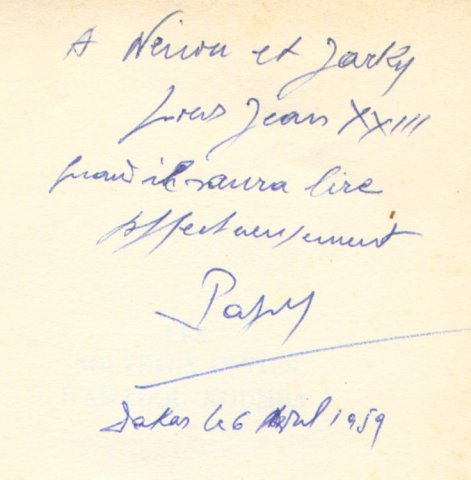 A Ninou et Jacky
puis Jean XXIII
quand il saura lire
affectueusement
Papy
Dakar le 6 Avril 1959